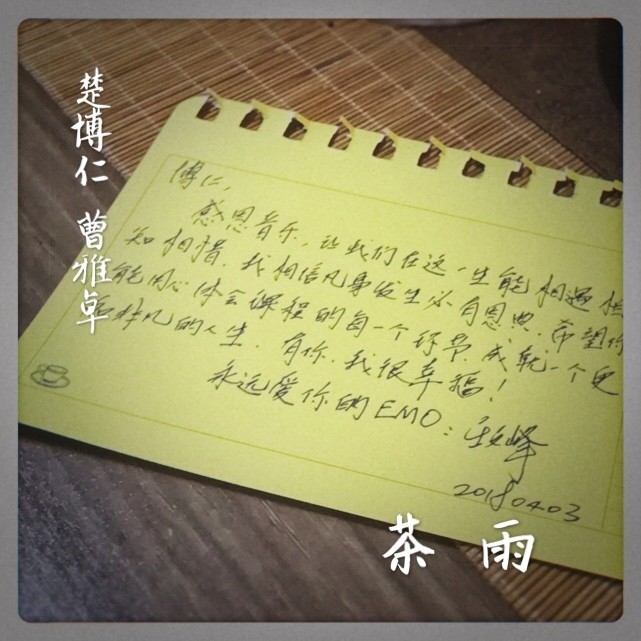 楚博仁 曹雅卓
博仁,
感恩音乐,让我们在这一生能相遇相
知相惜.我相信凡事发生必有恩典.希望你
能用心体会课程的每一个环节.成就一个更
非凡的人生.有你.我很幸福!
永远爱你的EMO:
20180403
茶 雨